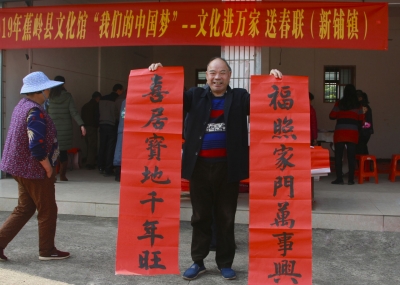 19年蕉岭县文化馆“我们的中国梦”--文化进万家 送春联（新铺镇）
喜居寶地千年旺
福照家門萬事興